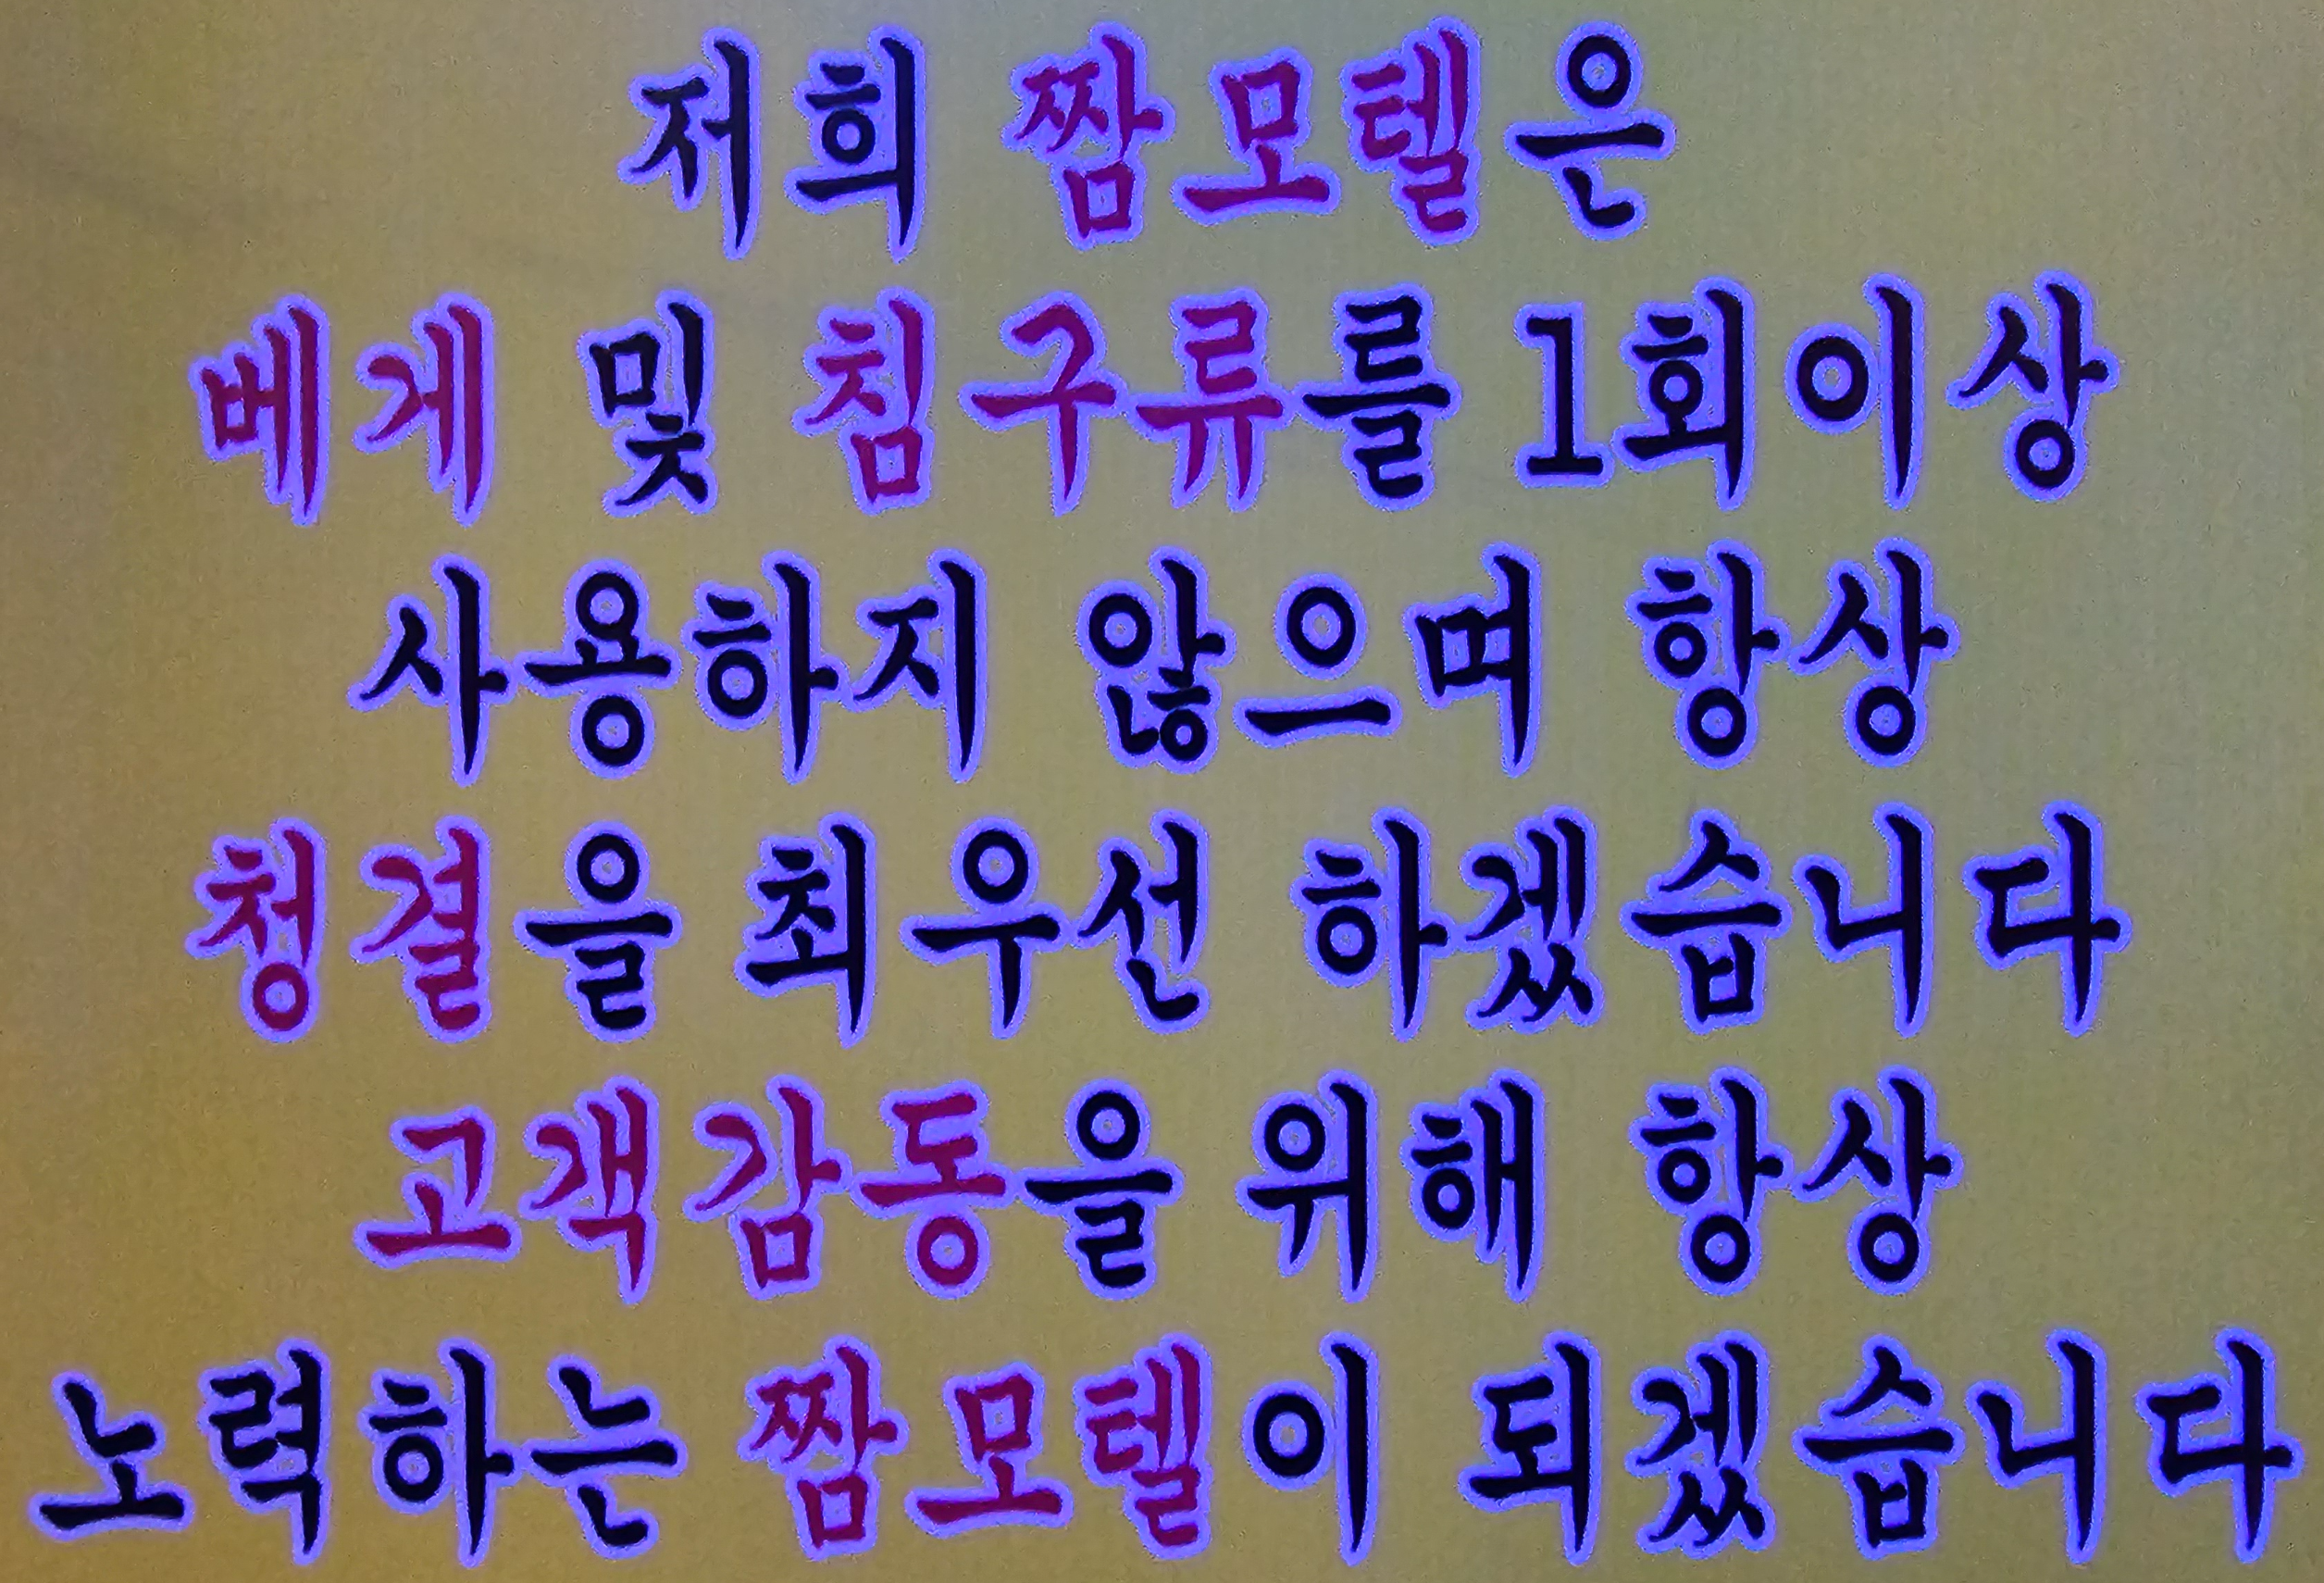 저희 짬모텔은
베게 및 침구류를 1회이상
사용하지 않으며 항상
청결을 최우선 하겠습니다
고객감동을 위해 항상
노력하는 짬모텔이 되겠습니다